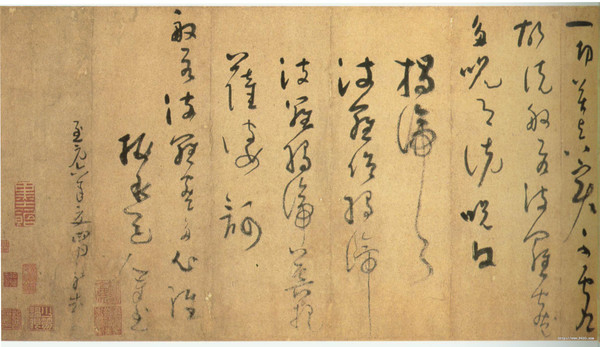 一切苦真實不虛
故說般若波羅蜜
多呪即說呪曰
揭諦
波羅僧揭諦
波羅揭諦菩提
薩婆訶
般若波羅蜜多心經
梅花道人書
至元六年夏四月